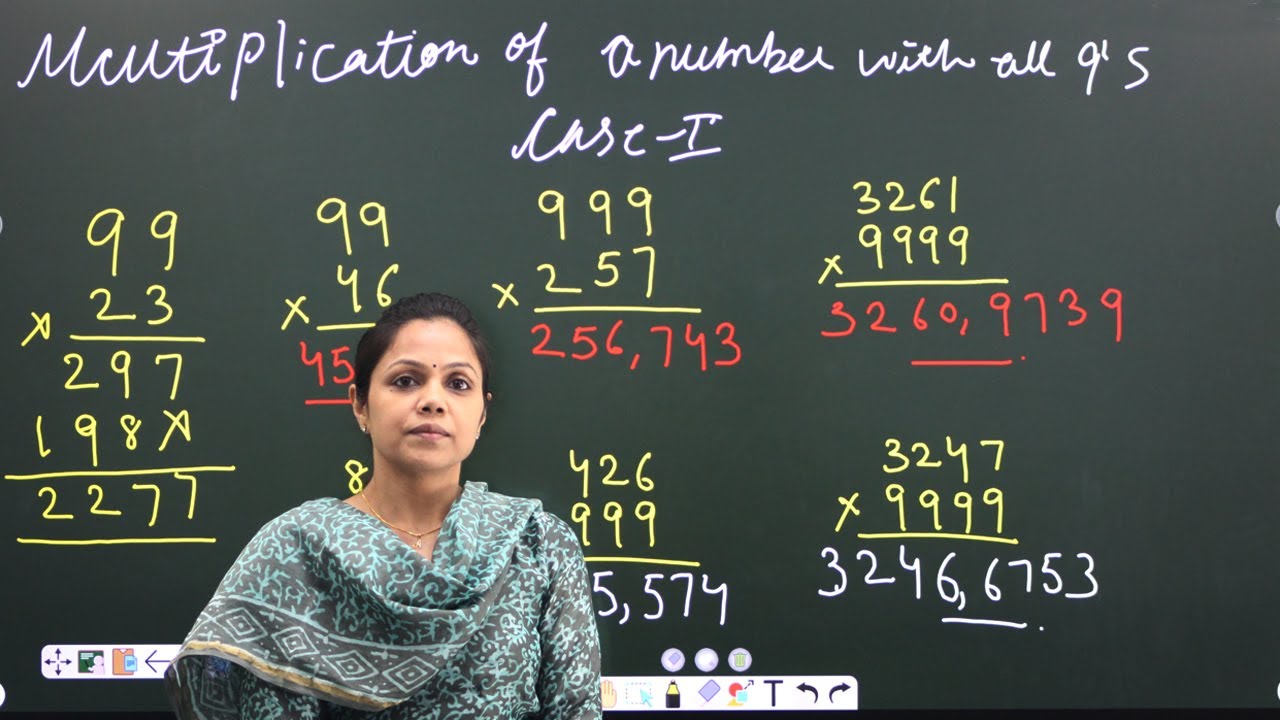 Multiplication of a number with all 9's
Case-I
99
× 23
297
198×
2277
99
× 46
45
8
999
× 257
256,743
426
999
5,574
3261
× 9999
3260,9739
3247
× 9999
3246,6753
T